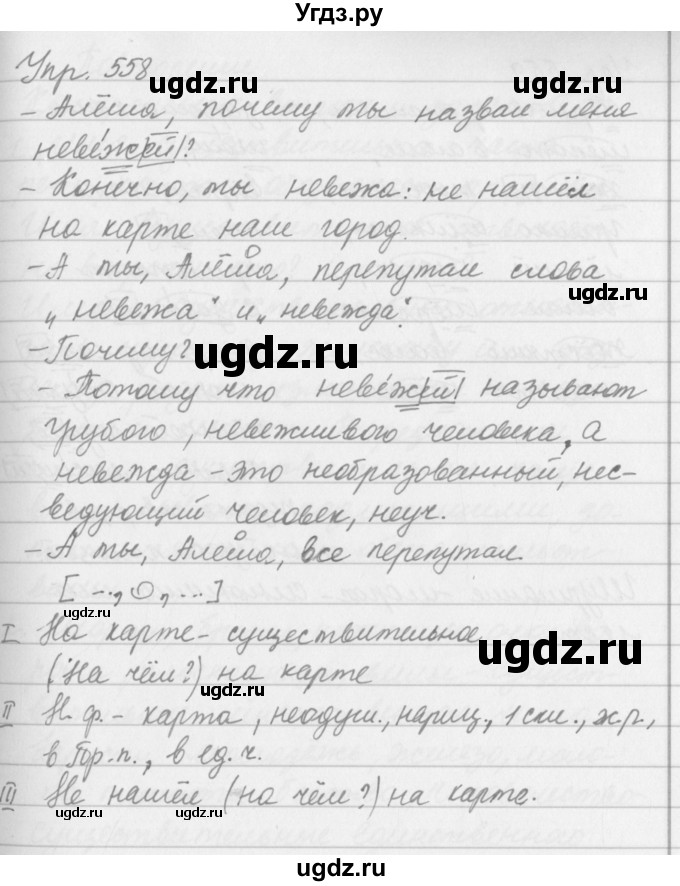 Угдз.ру
Упр. 558
ugdz.ru
- Алёша, почему ты назвал меня
невежей?
- Конечно, ты невежа: не нашёл
на карте наш город.
- А ты, Алёша, перепутал слова
ugdz.ru
„невежа" и „невежда".
- Почему?
ugdz.ru
ugdz.ru
- Потому что невежей называют
грубого, невежливого человека, а
невежда - это необразованный, нес-
ведующий человек, неуч.
- А ты, Алёша, все перепутал.
[ ..., О, ... ]
ugdz.ru
I На карте - существительное
ugdz.ru
(На чём?) на карте
ugdz.ru
II Н.ф. - карта, неодуш., нариц., 1 скл., ж.р.,
в Пр.п., в ед.ч.
III Не нашёл (на чём?) на карте.
ugdz.ru
ugdz.ru
ugdz.ru